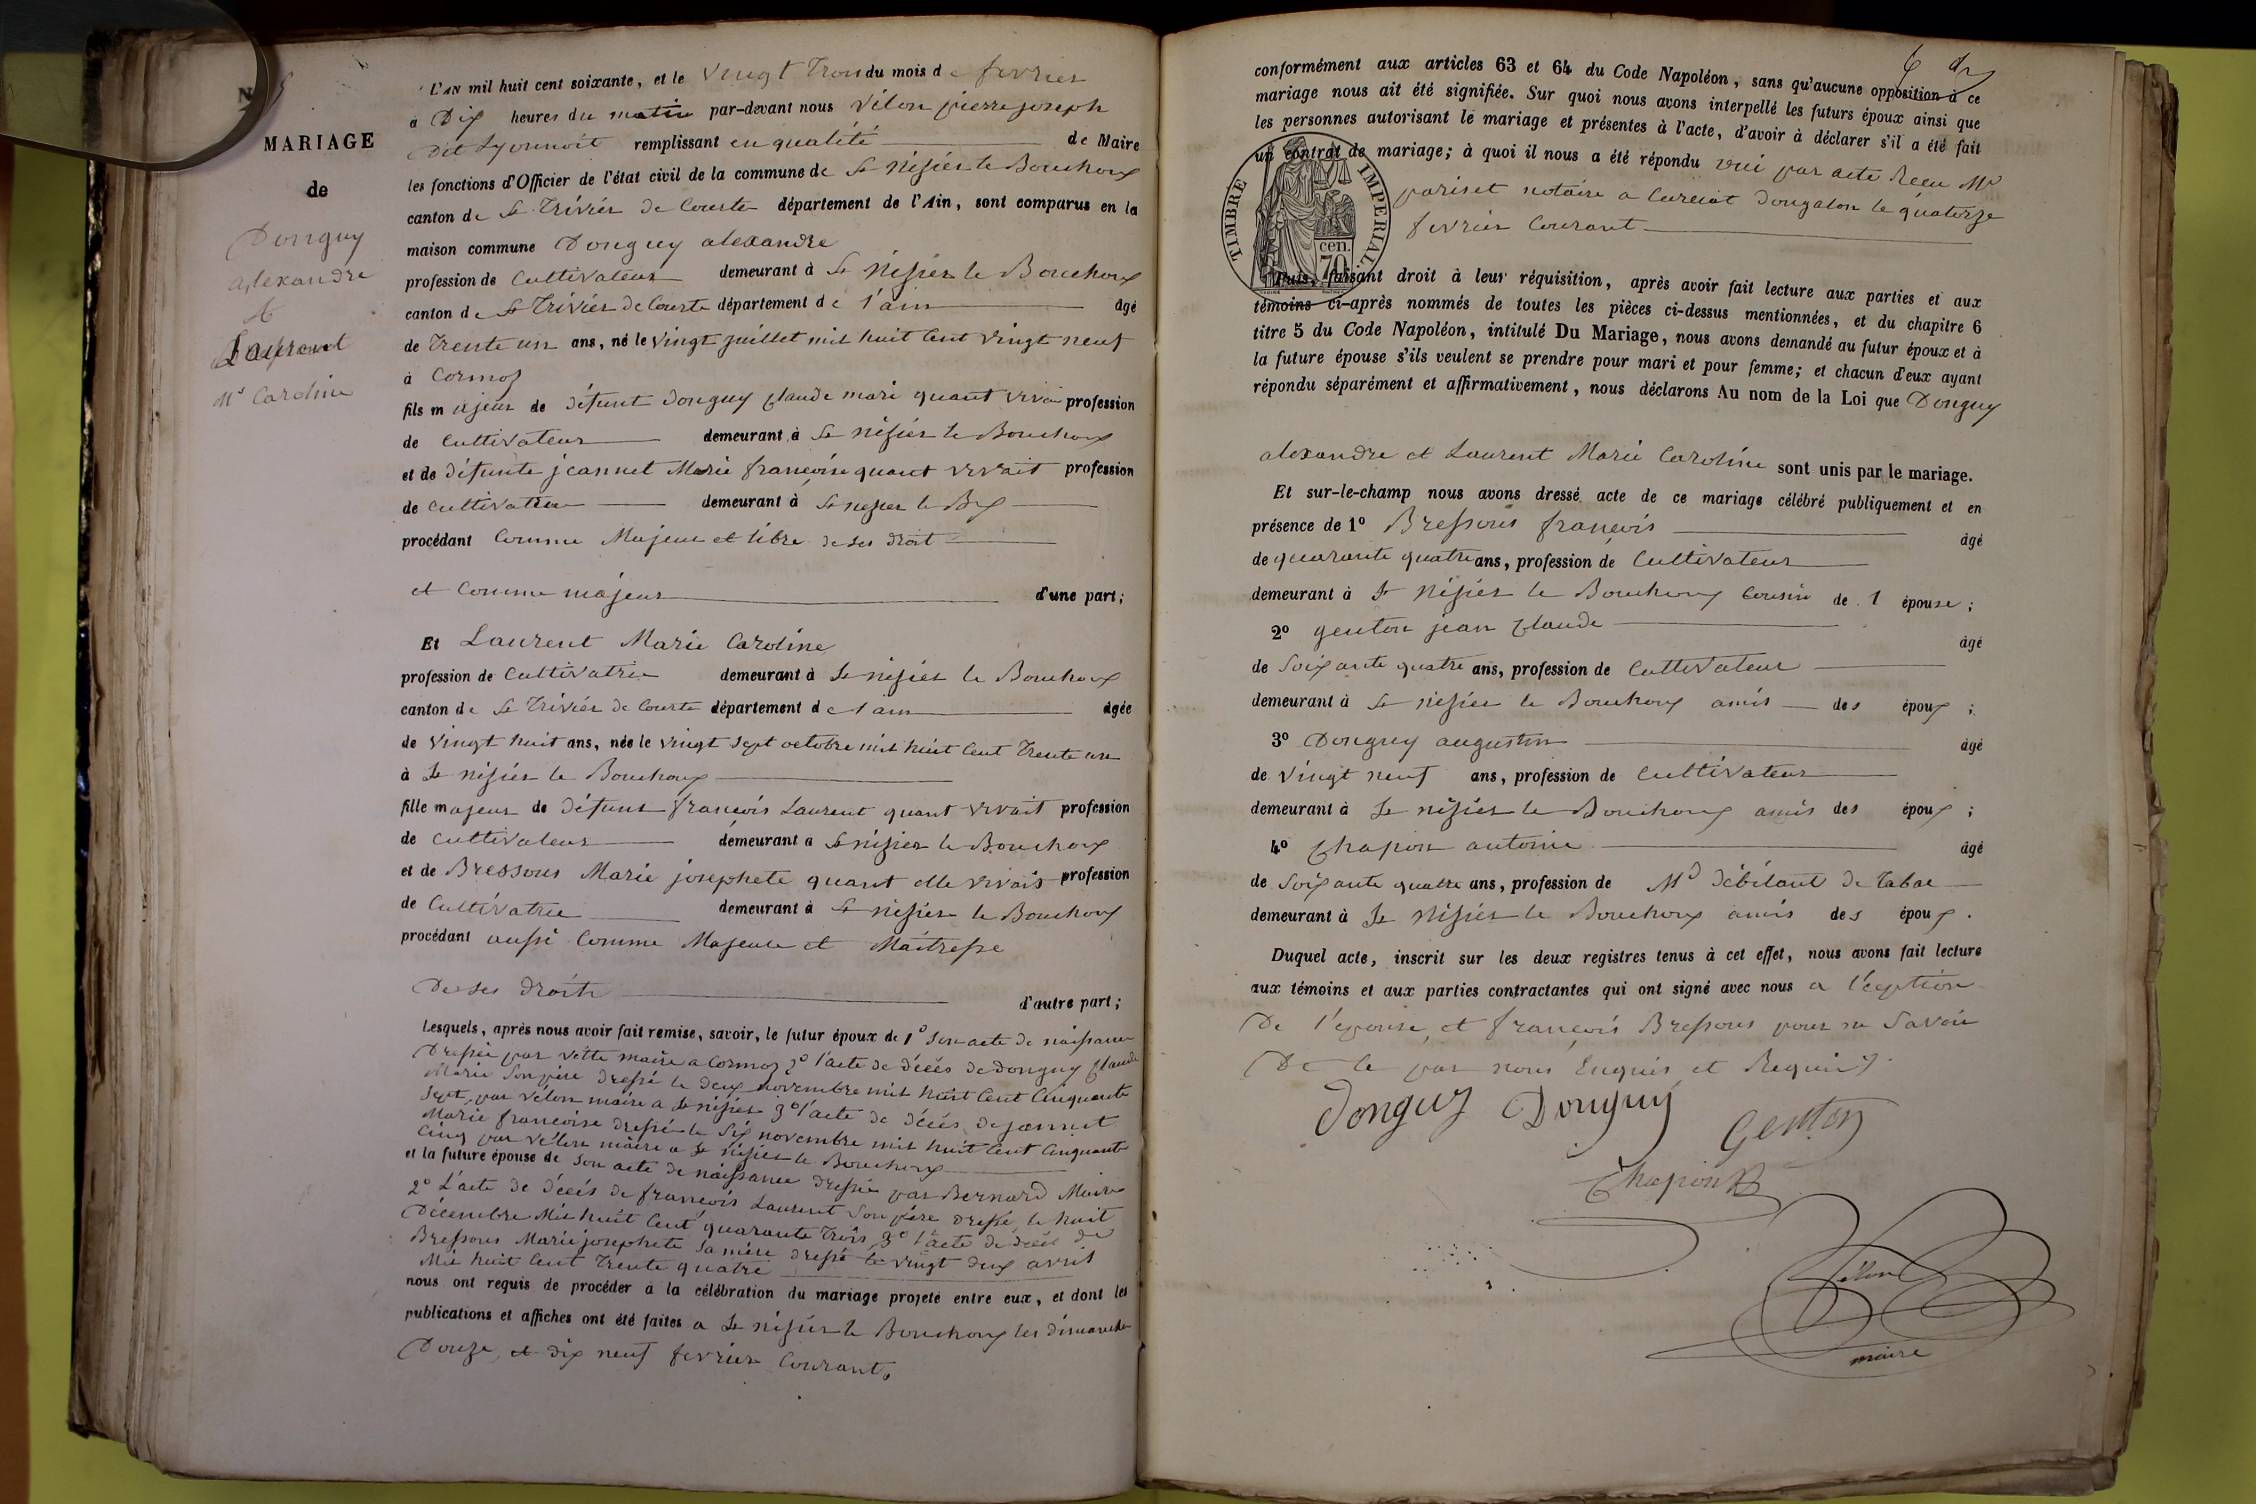 N
MARIAGE
de
Donguy
alexandre
&
Laurent
Mie Caroline
L'AN mil huit cent soixante, et le vingt trois du mois de fevrier
à Dix heures du matin par-devant nous vélon pierre joseph
Dit Lyonnoit remplissant en qualité de Maire
les fonctions d'Officier de l'état civil de la commune de St Nizier le Bouchoux
canton de St Trivier de Courte département de l'Ain, sont comparus en la
maison commune Donguy alexandre
profession de Cultivateur demeurant à St Nizier le Bouchoux
canton de St Trivier de Courte département de l'ain âgé
de Trente un ans, né le vingt juillet mil huit Cent vingt neuf
à Cormoz
fils majeur de défunt Donguy Claude mari quant vivai profession
de Cultivateur demeurant à St Nizier le Bouchoux
et de défunte jeannet Marie francoise quant vivait profession
de Cultivatrice demeurant à St nizier le Bx
procédant Comme Majeur et libre de ses droit
et Comme majeur d'une part;
Et Laurent Marie Caroline
profession de Cultivatrice demeurant à St nizier le Bouchoux
canton de St Trivier de Courte département de l'ain âgée
de vingt huit ans, née le vingt sept octobre mil huit Cent Trente un
à St nizier le Bouchoux
fille majeur de défunt francois Laurent quant vivait profession
de Cultivateur demeurant à St nizier le Bouchoux
et de Bressous Marie josephete quant elle vivais profession
de Cultivatrice demeurant à St nizier le Bouchoux
procédant aussi Comme Majeure et Maitresse
De ses droits d'autre part;
Lesquels, après nous avoir fait remise, savoir, le futur époux de 1° Son acte de naissance
Dressée par vitte maire a Cormoz 2° l'acte de décès de Donguy Claude
Marie Son père dressé le deux novembre mil huit Cent Cinquante
Sept par vélon maire a St nizier 3° l'acte de décès de jeannet
Marie francoise dressé le Six novembre mil huit Cent Cinquante
Cinq par vélon maire a St nizier le Bouchoux
et la future épouse de Son acte de naissance dressée par Bernard Maire
2° L'acte de décès de francois Laurent Son père dressé le huit
Décembre Mil huit Cent quarante Trois 3° l'acte de décès de
Bressous Marie josephete Sa mère dressé le vingt deux avril
Mil huit Cent Trente quatre
nous ont requis de procéder à la célébration du mariage projeté entre eux, et dont les
publications et affiches ont été faites a St nizier le Bouchoux les dimanche
Douze, et dix neuf fevrier Courant.
conformément aux articles 63 et 64 du Code Napoléon, sans qu'aucune opposition à ce
mariage nous ait été signifiée. Sur quoi nous avons interpellé les futurs époux ainsi que
les personnes autorisant le mariage et présentes à l'acte, d'avoir à déclarer s'il a été fait
un contrat de mariage; à quoi il nous a été répondu oui par acte Recu Me
pariset notaire a Curciat Dongalon le quatorze
fevrier Courant
TIMBRE IMPERIAL
70 cen.
Puis, faisant droit à leur réquisition, après avoir fait lecture aux parties et aux
témoins ci-après nommés de toutes les pièces ci-dessus mentionnées, et du chapitre 6
titre 5 du Code Napoléon, intitulé Du Mariage, nous avons demandé au futur époux et à
la future épouse s'ils veulent se prendre pour mari et pour femme; et chacun d'eux ayant
répondu séparément et affirmativement, nous déclarons Au nom de la Loi que Donguy
alexandre et Laurent Marie Caroline sont unis par le mariage.
Et sur-le-champ nous avons dressé acte de ce mariage célébré publiquement et en
présence de 1° Bressous francois âgé
de quarante quatre ans, profession de Cultivateur
demeurant à St Nizier le Bouchoux Cousin de l épouse;
2° genton jean Claude âgé
de Soixante quatre ans, profession de Cultivateur
demeurant à St nizier le Bouchoux amis des époux;
3° Donguy augustin âgé
de vingt neuf ans, profession de Cultivateur
demeurant à St nizier le Bouchoux amis des époux;
4° Chapon antoine âgé
de Soixante quatre ans, profession de Md débitant de Tabac
demeurant à St Nizier le Bouchoux amis des époux.
Duquel acte, inscrit sur les deux registres tenus à cet effet, nous avons fait lecture
aux témoins et aux parties contractantes qui ont signé avec nous a l'éxeption
De l'epouse, et francois Bressous pour ne Savoir
De ce par nous Enquis et Requis
Donguy Donguy
Genton
Chapon
Vélon
maire